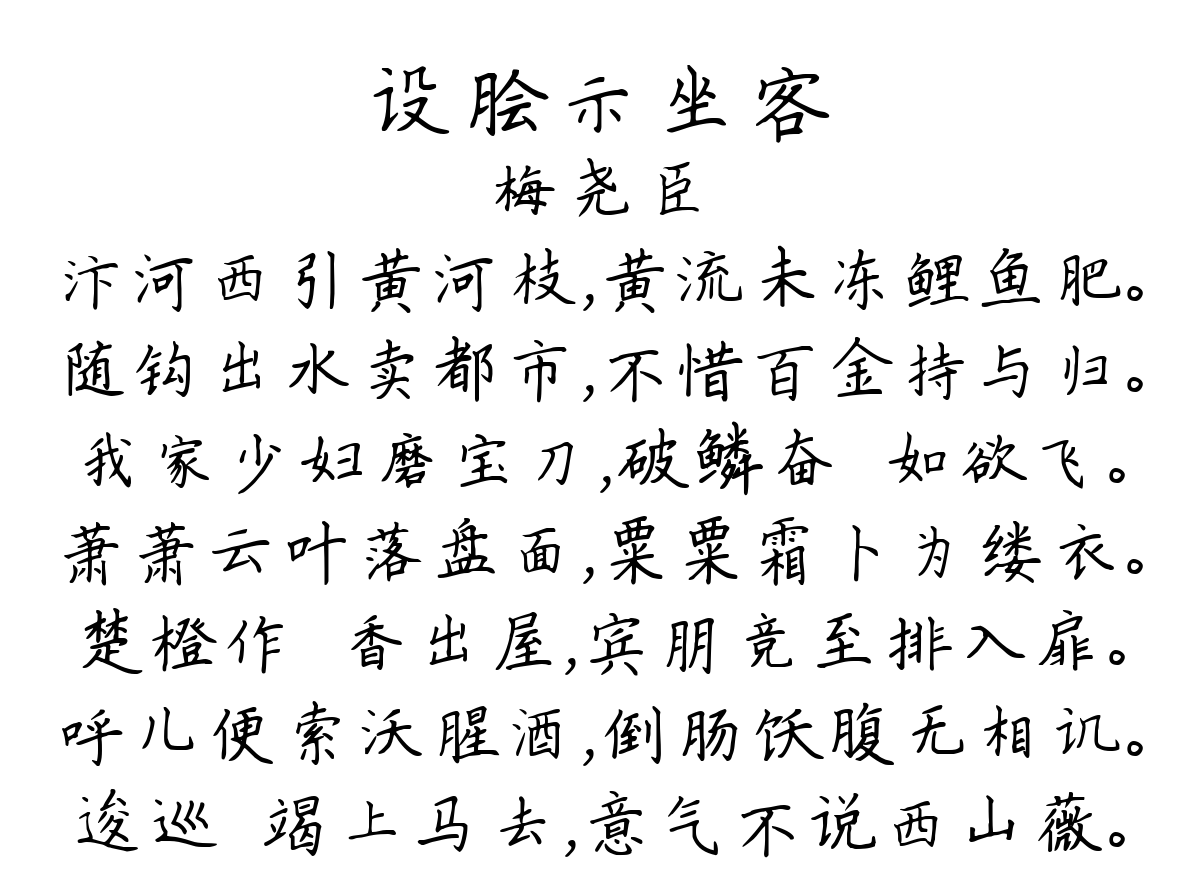 设脍示坐客
梅尧臣
汴河西引黄河枝,黄流未冻鲤鱼肥。
随钩出水卖都市,不惜百金持与归。
我家少妇磨宝刀,破鳞奋 如欲飞。
萧萧云叶落盘面,粟粟霜卜为缕衣。
楚橙作 香出屋,宾朋竞至排入扉。
呼儿便索沃腥酒,倒肠饫腹无相讥。
逡巡 竭上马去,意气不说西山薇。